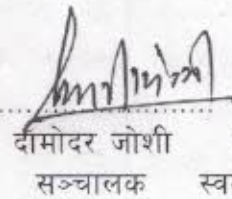 दामोदर जोशी
सञ्चालक